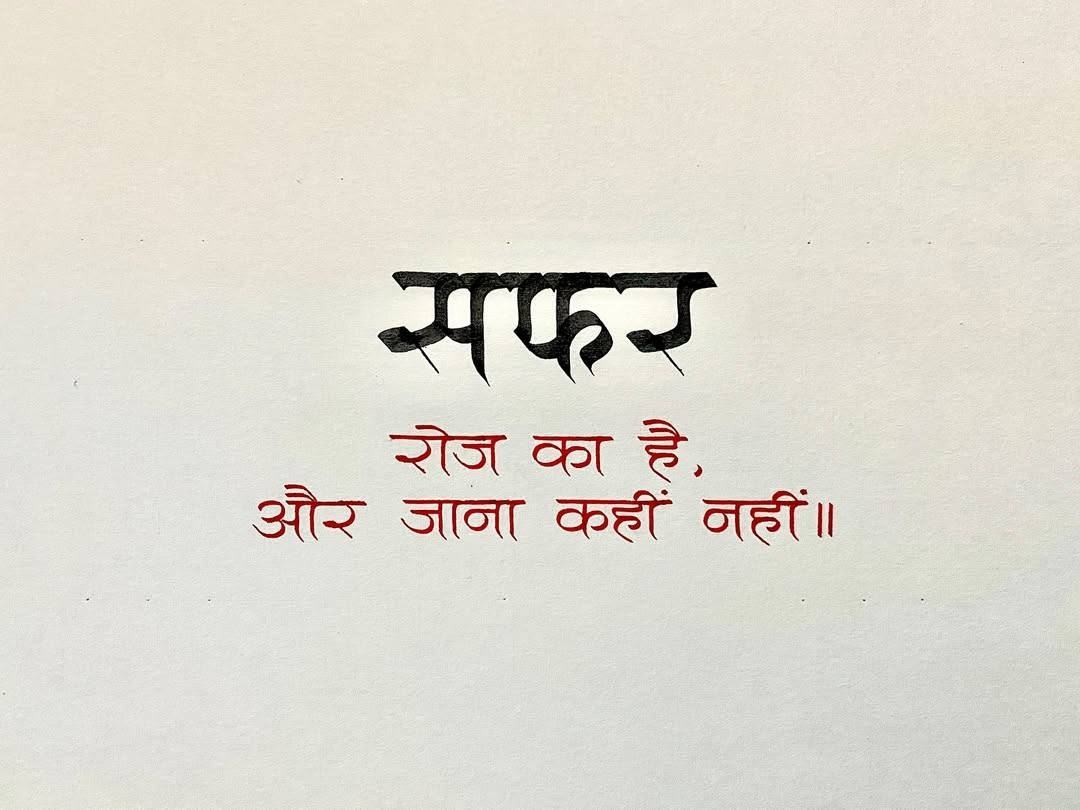 सफर
रोज का है,
और जाना कहीं नहीं॥